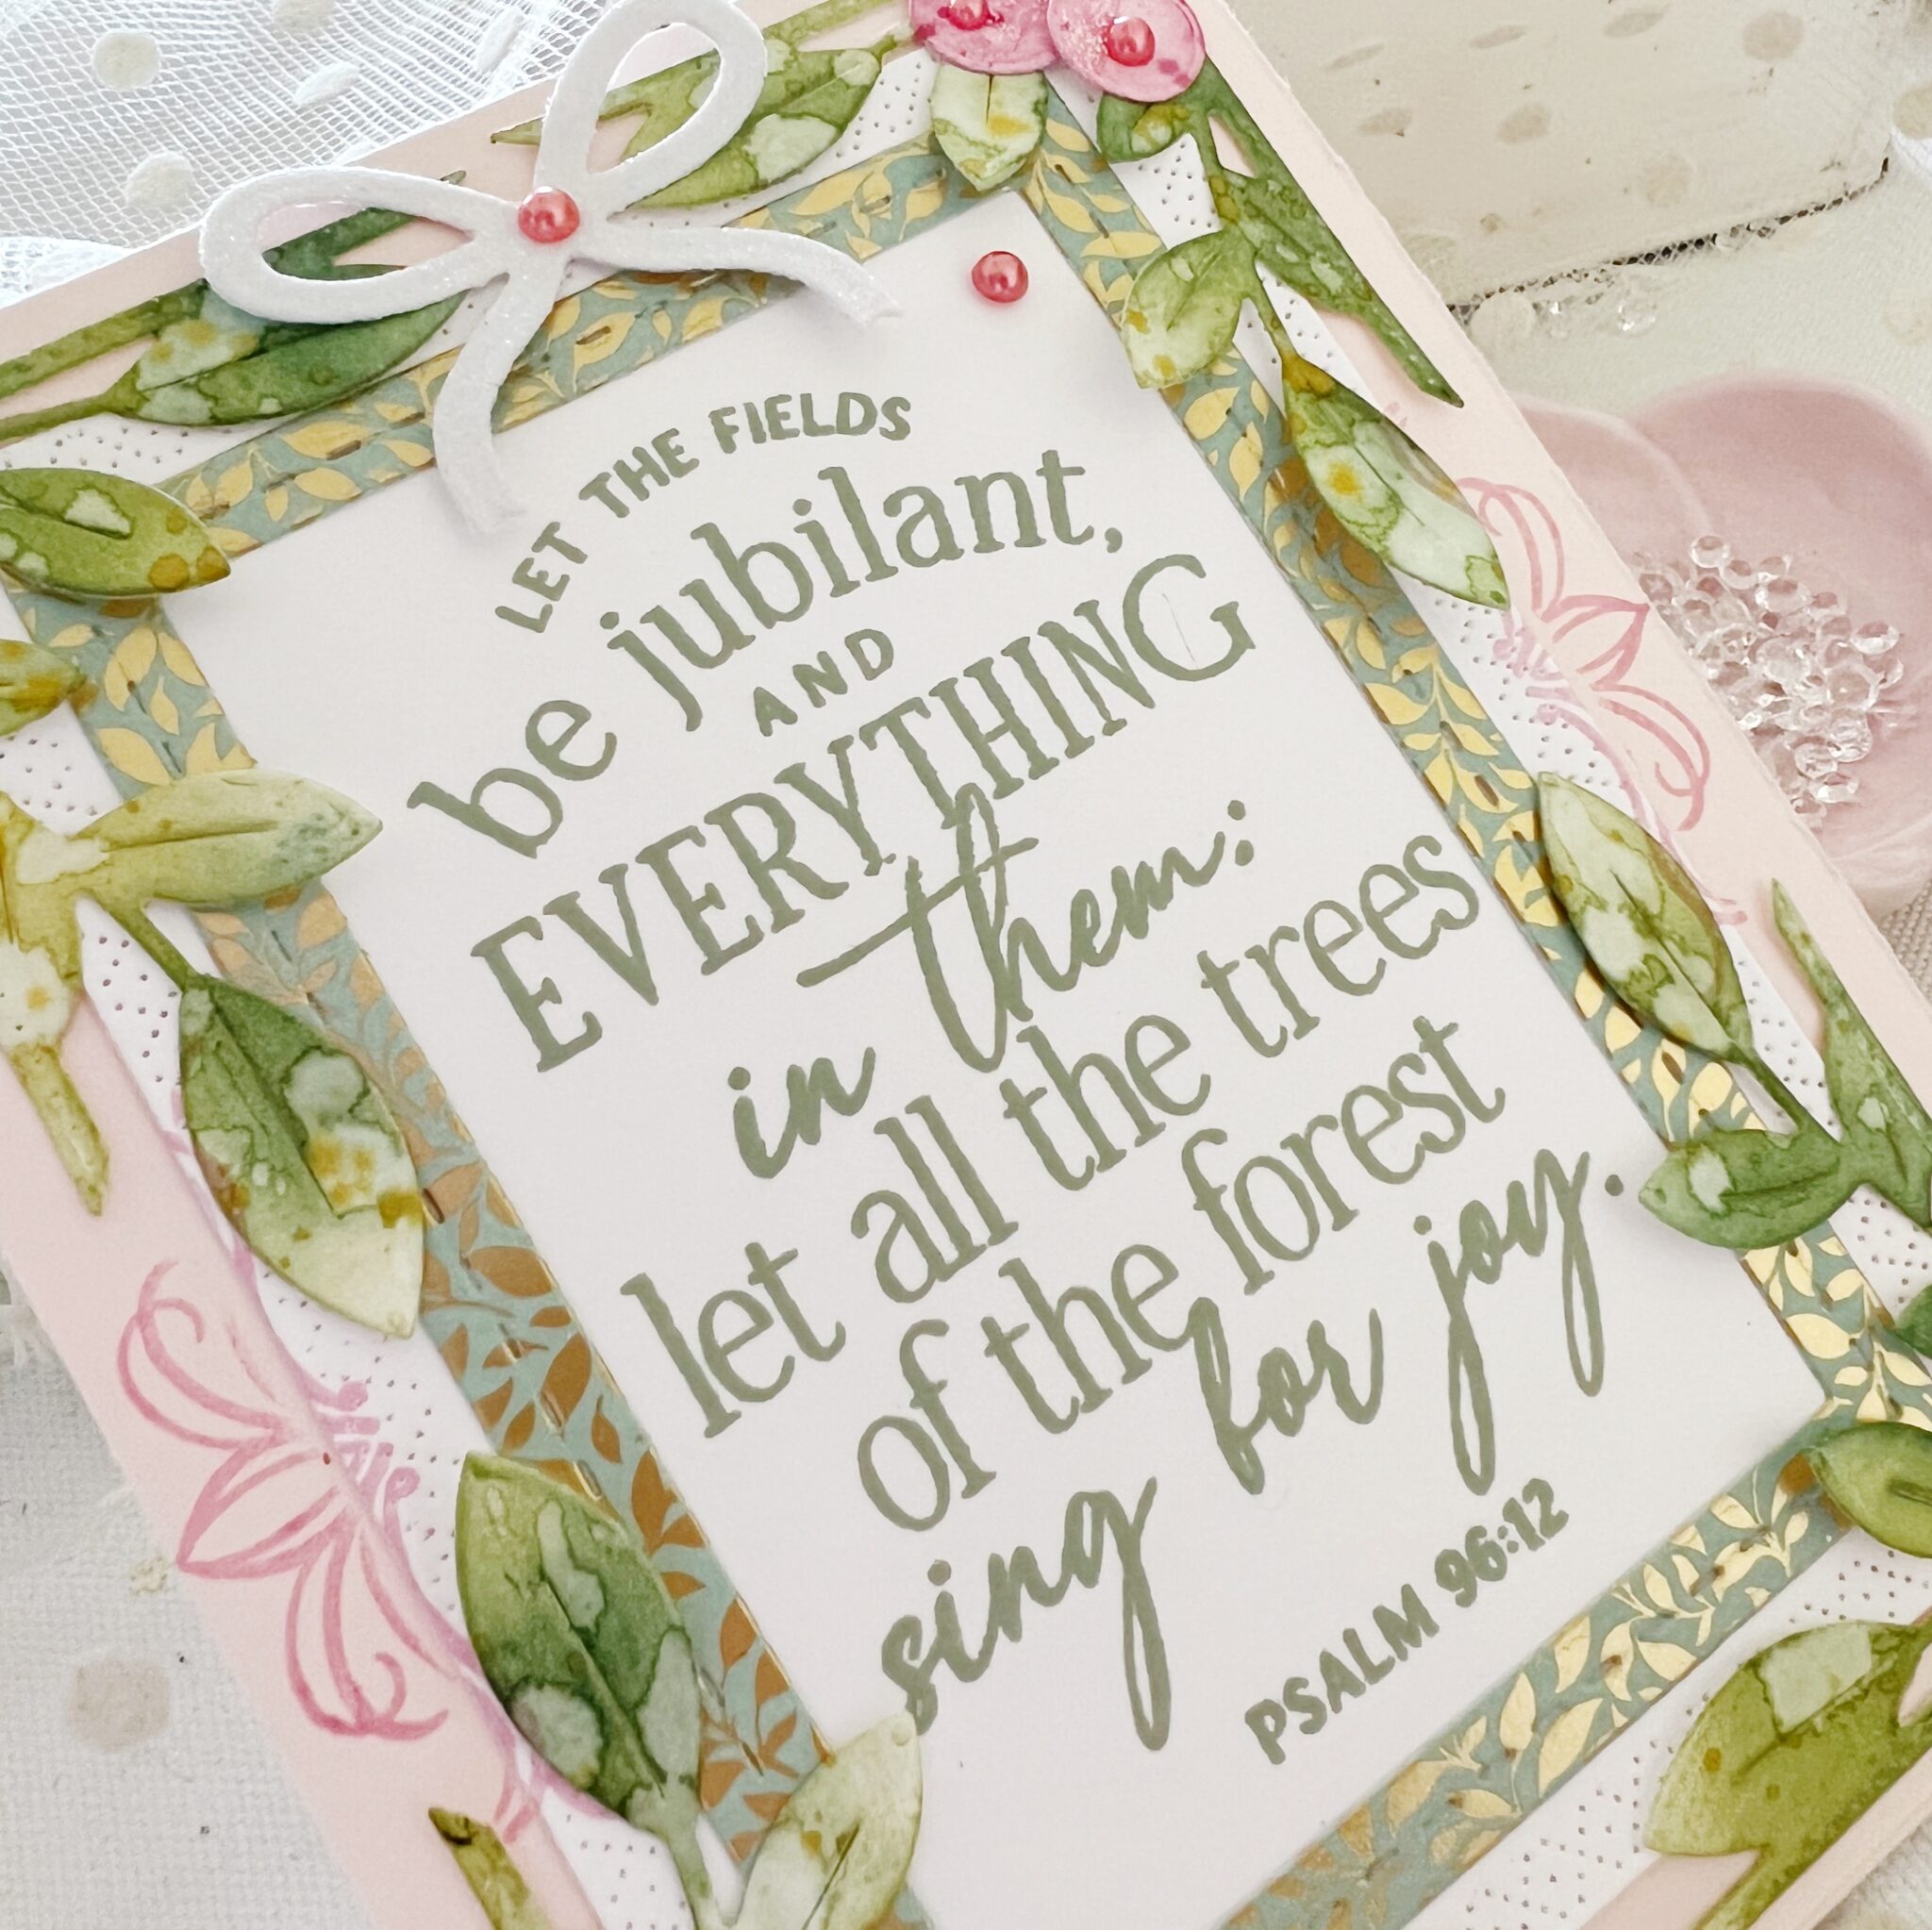 LET THE FIELDS
be jubilant,
AND
EVERYTHING
in them:
let all the trees
of the forest
sing for joy.
PSALM 96:12